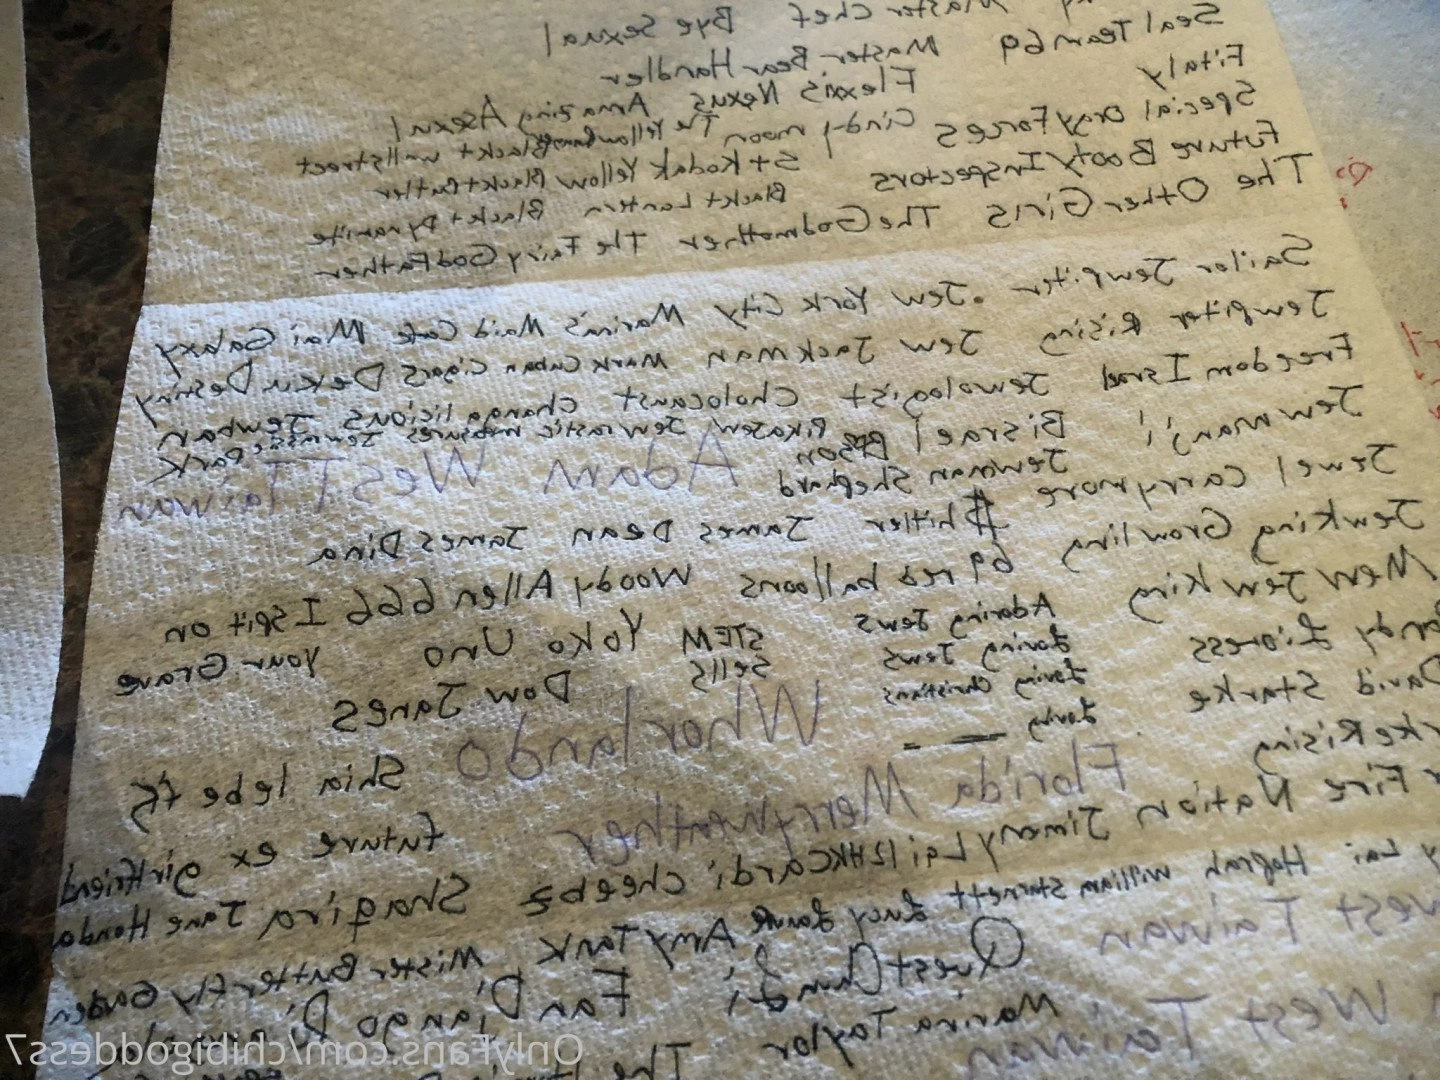 Master Chef Bye Sexual
Seal Team 69 Master Bear Handler
Fitaly Flexxis Nexus Amazing Asexual
Special Orgy Forces Cindy moon The Yellow Blackt wallstreet
Future Booty Inspectors St Kodak Yellow Blackt Butler
Blackt Lantern Blackt Dynamite
The Other Girls The Godmother The Fairy GodFather
Sailor Jewpiter Jew York City Marina's Maid Cafe Mai Galaxy
Jewpiter Rising Jew Jackman Mark Cuban Cigars Dekun Destiny
Freedom Israel Jewologist Cholocaust Changalicious Jewban
Jewmanji Bisrael Pikajew Jewrastic measures Jewrassic Park
Bison Adam West Taiwan
Jewel Carrymore Jewman Shephard
$hitler James Dean James Dina
Jewking Growling 69 red balloons Woody Allen 666 I spit on
your Grave
Mew Jewking Adoring Jews STEM Yoko Uno
Lioness Loving Jews sells Dow Janes
David Starke Loving Christians
Loving
Whorlando
Rising Florida Merryweather Shia lebe
Fire Nation Jimmy Lai 12HKCardi Cheebz future ex girlfriend
Lai Hafrah William Starnett Lucy Shaqira Jane Honda
West Taiwan QuestChundi Amy Tank Mister Butterfly Garden
West Taiwan Marina Taylor Fan Django
The
OnlyFans.com/chibigoddess7